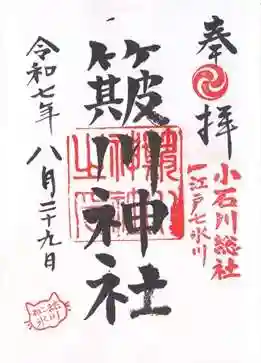 奉拝
小石川総社
江戸七氷川
簸川神社
令和七年八月二十九日